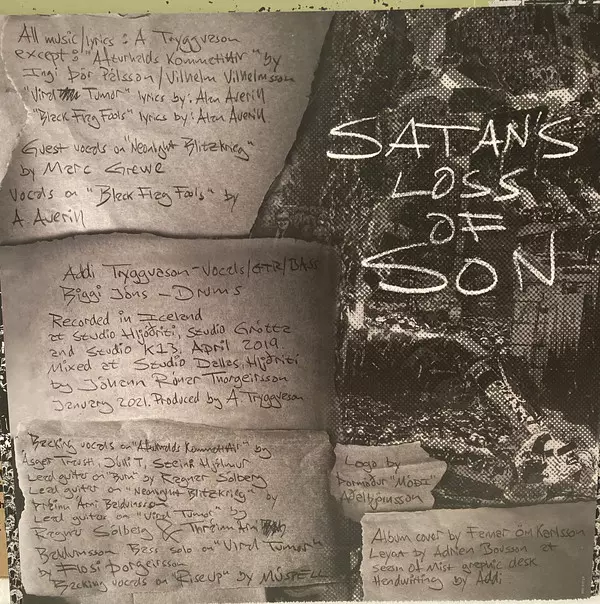 All music/lyrics : A Tryggvason
except : "Afturhalds Kommatittir" by
Ingi Þór Pálsson / Vilhelm Vilhelmsson
"Viral Tumor" lyrics by : Alan Averill
"Black Flag Fools" lyrics by : Alan Averill
Guest vocals on "Neonlight Blitzkrieg"
by Marc Grewe
Vocals on "Black Flag Fools" by
A Averill
SATAN'S
LOSS
OF
SON
Addi Tryggvason - Vocals/GTR/BASS
Biggi Jóns - DRUMS
Recorded in Iceland
at Studio Hljóðriti, Studio Grótta
and Studio K13, April 2019.
Mixed at Studio Dallas, Hljóðriti
by Jóhann Rúnar Thorgeirsson
January 2021. Produced by A. Tryggvason
Backing vocals on "Afturhalds Kommatittir" by
Ásgeir Trausti, Júlli T,
Lead guitar on "Burn" by Ragnar Sólberg
Lead guitar on "Neonlight Blitzkrieg" by
Þráinn Árni Baldvinsson
Lead guitar on "Viral Tumor" by
Ragnar Sólberg & Thráinn Árni
Baldvinsson Bass solo on "Viral Tumor"
by Flosi Þorgeirsson
Backing vocals on "Rise up" by
Logo by
Þormóður "Móddi"
Aðalbjörnsson
Album cover by Fenner Örn Karlsson
Layout by Adrien Bousson at
Season of Mist graphic desk
Handwriting by Addi